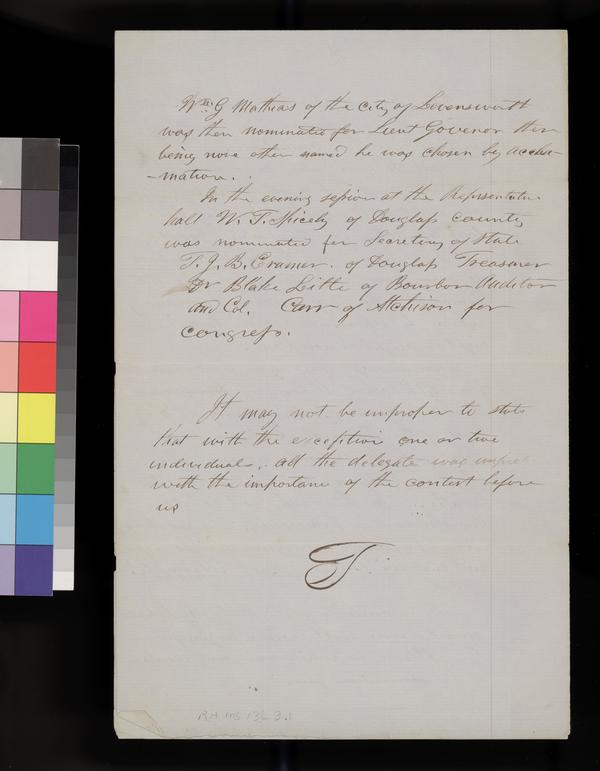 Wm. G Mathias of the City of Levensworth
was then nominated for Lieut Govenor ther
being none other named he was chosen by accla-
-mation.
In the evening session at the Representative
hall W. T. Spicely of Douglass County
was nominated for Secretary of State
T. J. B. Cramer. of Douglass Treasurer
Dr Blake Little of Bourbon Auditor
and Col. Carr of Atchison for
Congress.
It may not be improper to state
that with the exception one or two
individuals, all the delegate was
with the importanc of the contest before
us
T
RH MS 136 3.1